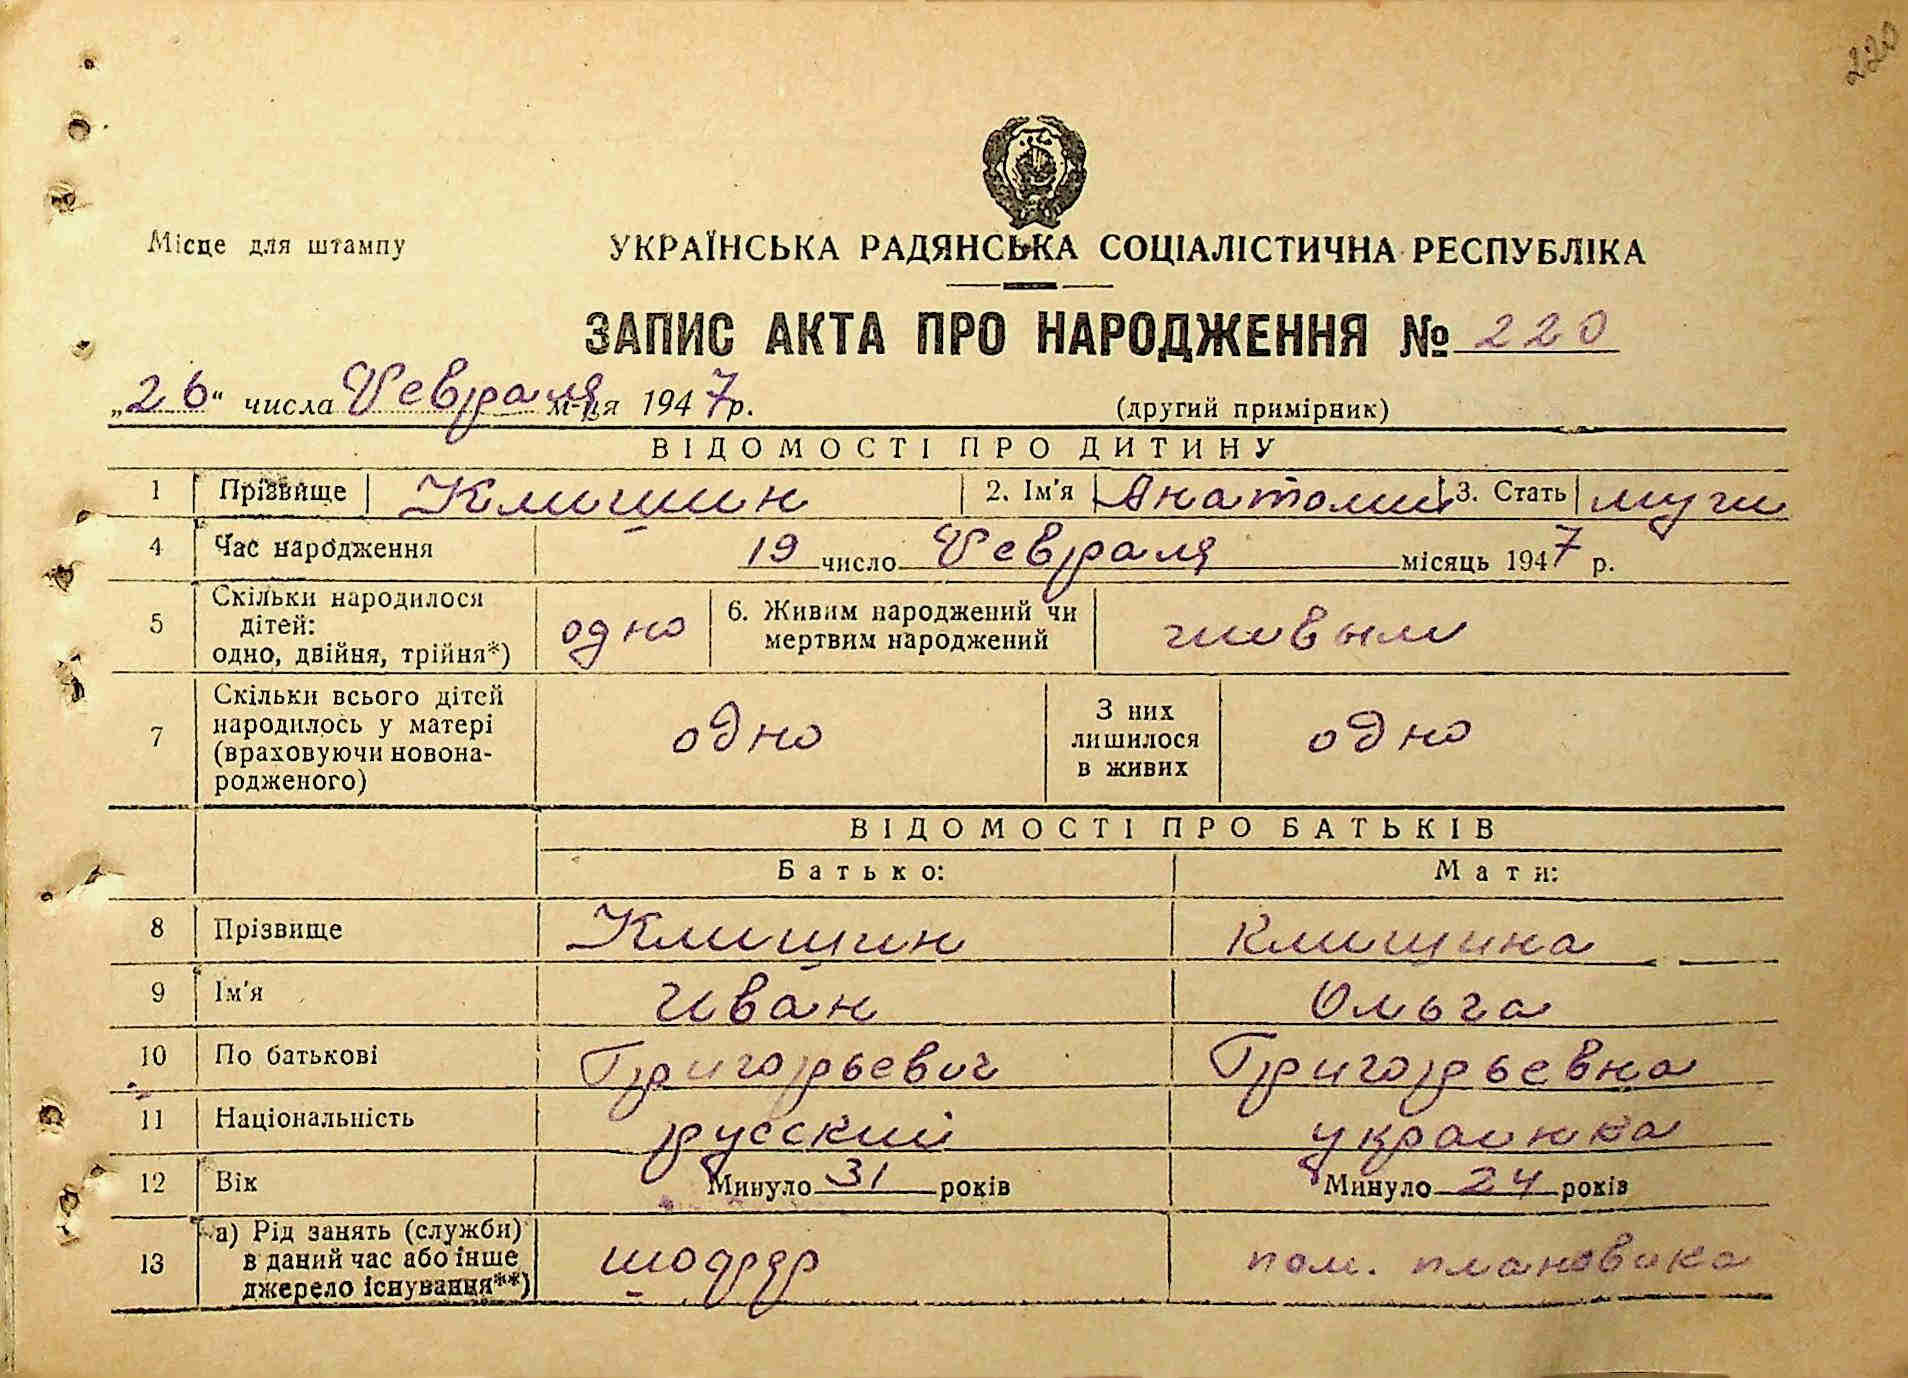 220
Місце для штампу
УКРАЇНСЬКА РАДЯНСЬКА СОЦІАЛІСТИЧНА РЕСПУБЛІКА
ЗАПИС АКТА ПРО НАРОДЖЕННЯ № 220
„26“ числа Февраля м-ця 1947 р. (другий примірник)
ВІДОМОСТІ ПРО ДИТИНУ
1 Прізвище Клишин 2. Ім'я Анатолий 3. Стать муж
4 Час народження 19 число Февраля місяць 1947 р.
5 Скільки народилося дітей: одно, двійня, трійня*) одно 6. Живим народжений чи мертвим народжений живым
7 Скільки всього дітей народилось у матері (враховуючи новонародженого) одно З них лишилося в живих одно
ВІДОМОСТІ ПРО БАТЬКІВ
Батько: Мати:
8 Прізвище Клишин Клишина
9 Ім'я Иван Ольга
10 По батькові Григорьевич Григорьевна
11 Національність русский украинка
12 Вік Минуло 31 років Минуло 24 років
13 а) Рід занять (служби) в даний час або інше джерело існування**) шофер пом. плановика